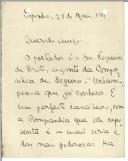 Espinho, 28 de Maio, 191
Querido amigo.
O portador é o Snr. Rogerio
de Brito, agente da Compa-
nhia de Seguros "
pessoa que já conheço. É
um perfeito cavalheiro, e
a Companhia que elle repre-
senta é a mais séria e
das mais poderosas. Ha